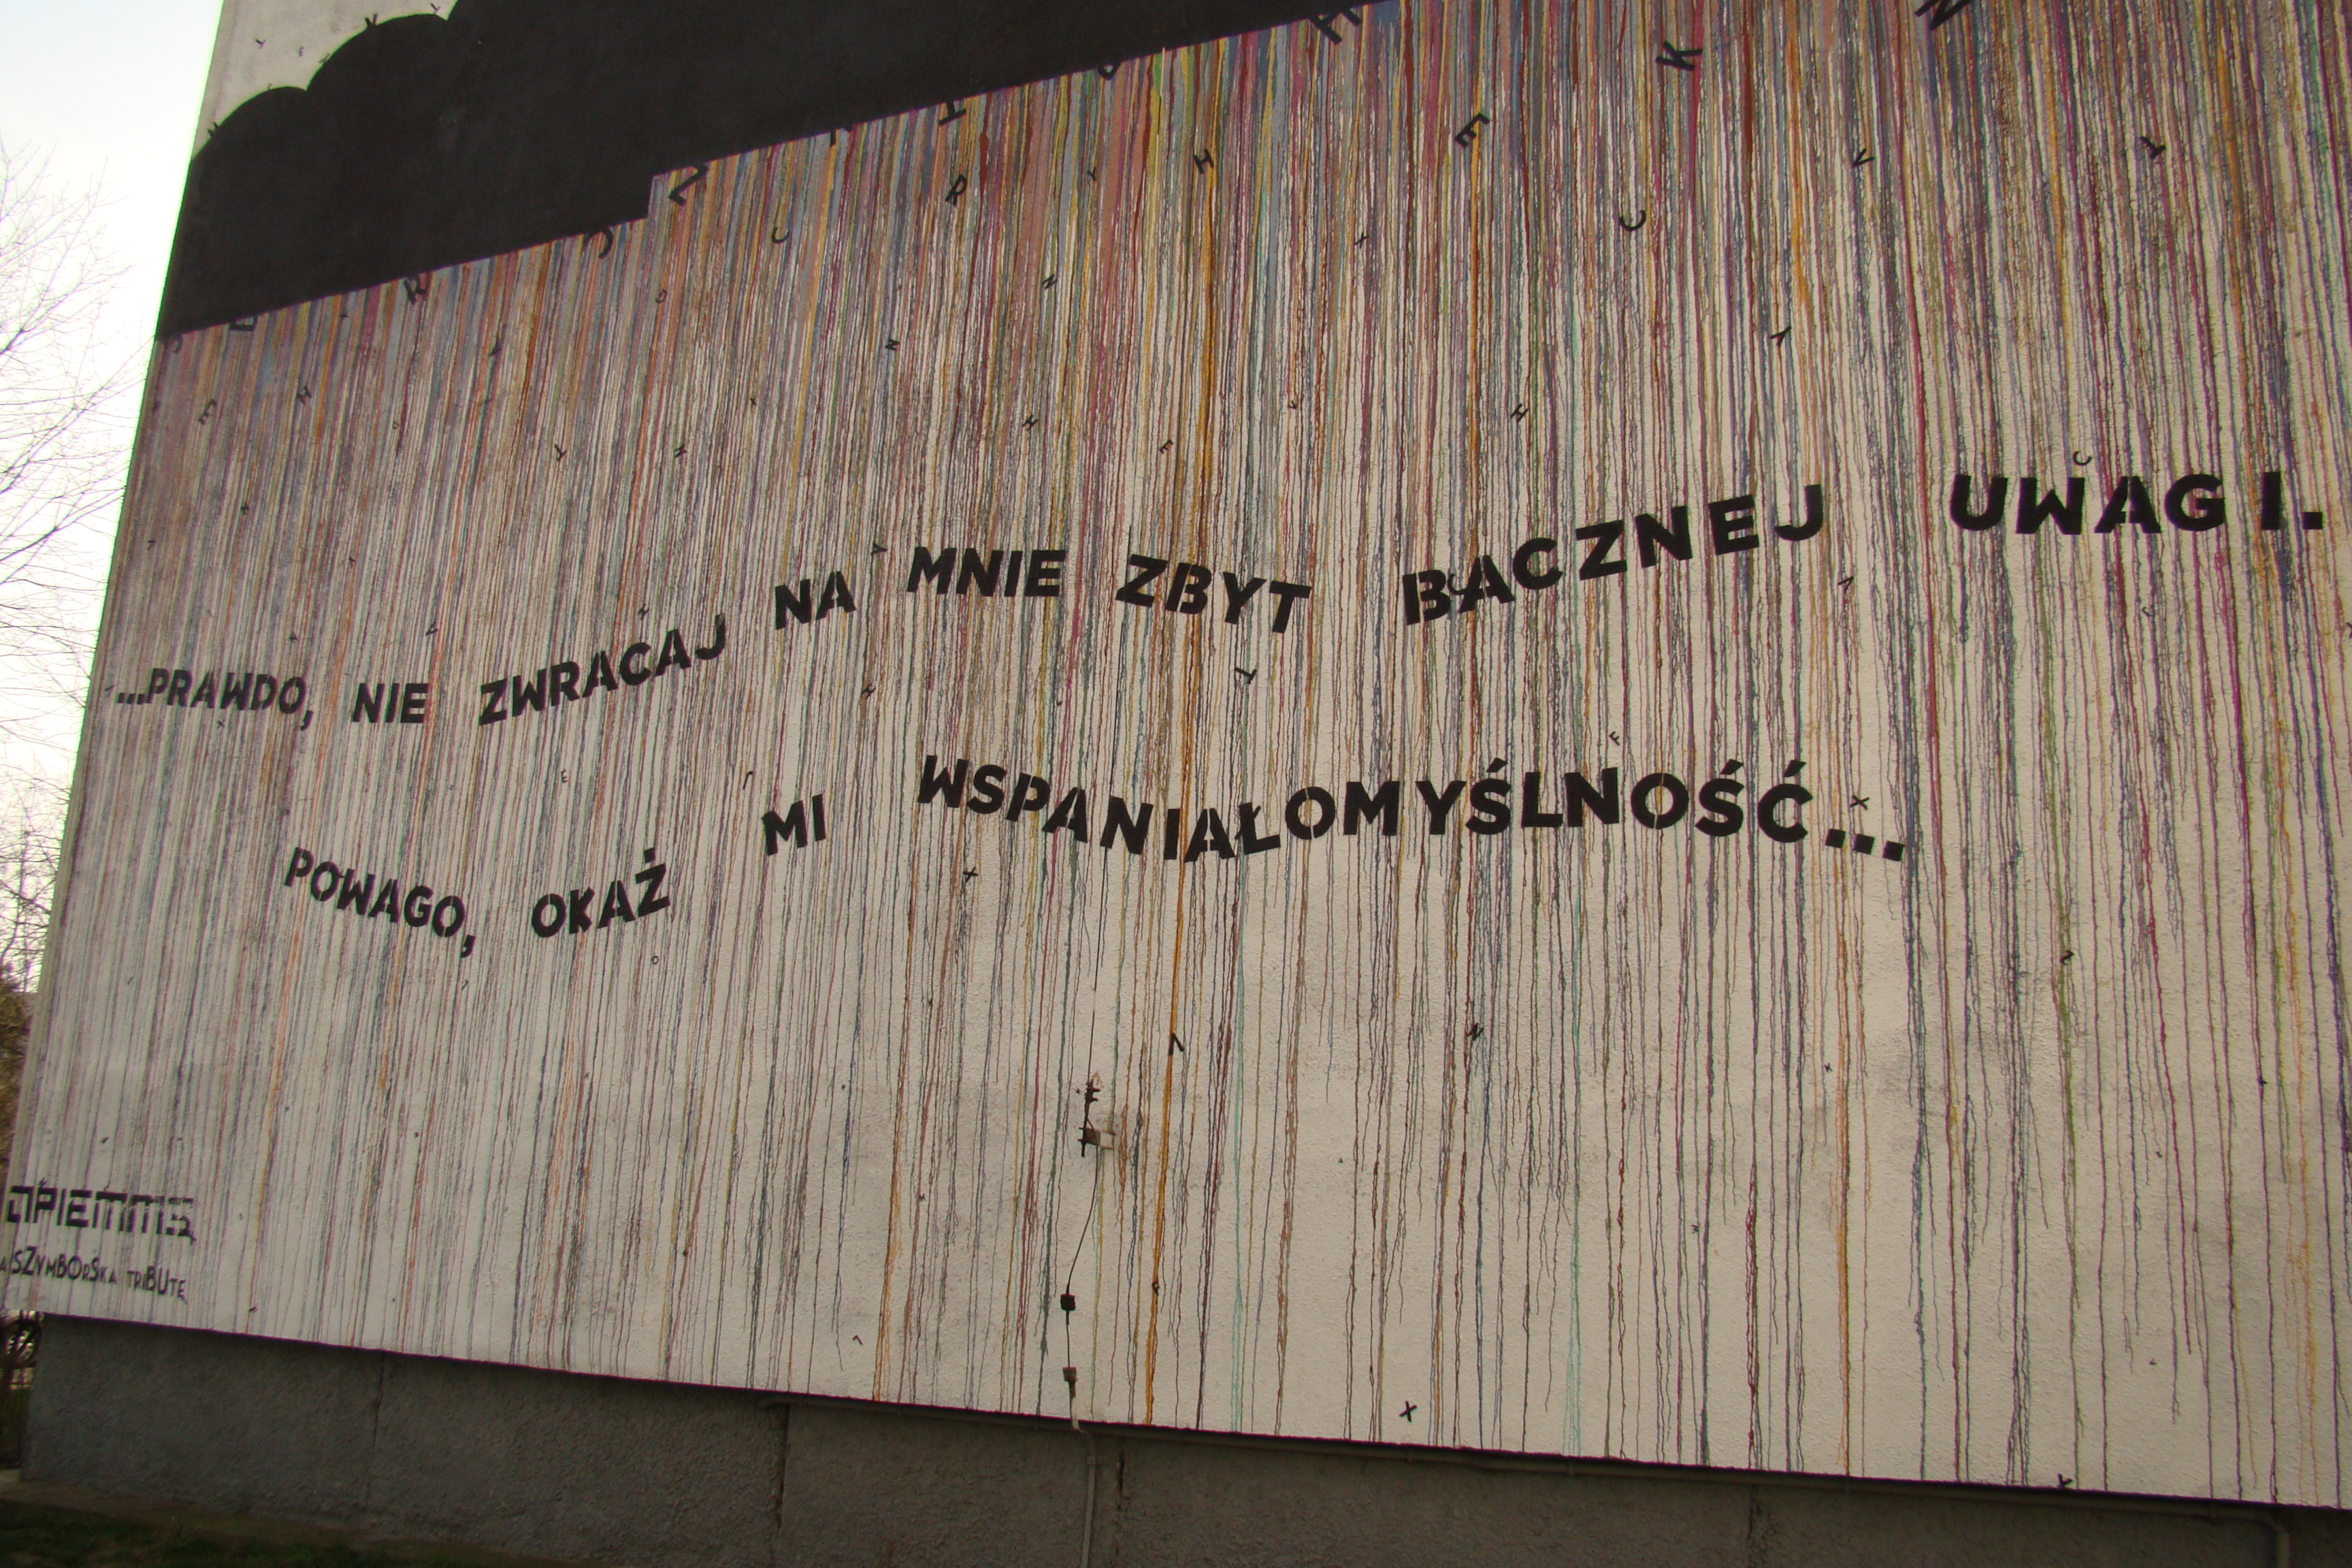 ...PRAWDO, NIE ZWRACAJ NA MNIE ZBYT BACZNEJ UWAGI.
POWAGO, OKAŻ MI WSPANIAŁOMYŚLNOŚĆ...
OPIEMME
A SZYMBORSKA TRIBUTE